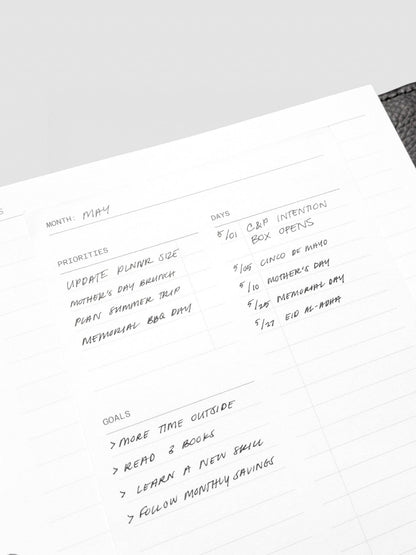 S
MONTH: MAY
PRIORITIES
UPDATE PLNNR SIZE
MOTHER'S DAY BRUNCH
PLAN SUMMER TRIP
MEMORIAL BBQ DAY
DAYS
5/01 C&P INTENTION
BOX OPENS
5/05 CINCO DE MAYO
5/10 MOTHER'S DAY
5/25 MEMORIAL DAY
5/27 EID AL-ADHA
GOALS
> MORE TIME OUTSIDE
> READ 3 BOOKS
> LEARN A NEW SKILL
> FOLLOW MONTHLY SAVINGS